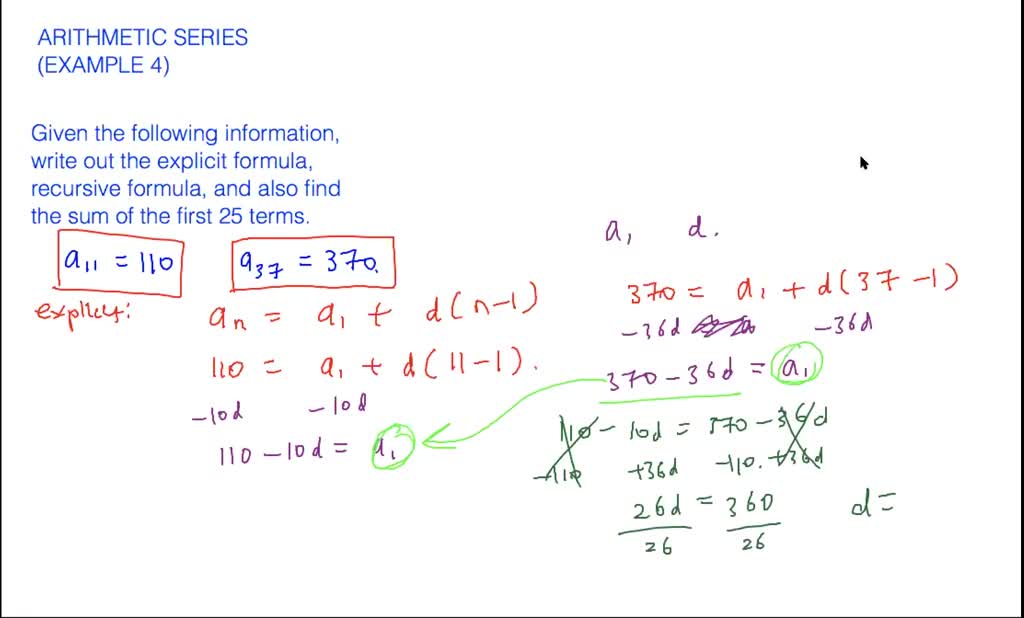 ARITHMETIC SERIES
(EXAMPLE 4)
Given the following information,
write out the explicit formula,
recursive formula, and also find
the sum of the first 25 terms.
a₁₁ = 110
a₃₇ = 370.
explicit:
aₙ = a₁ + d(n-1)
110 = a₁ + d(11-1).
-10d -10d
110-10d = a₁
a₁ d.
370 = a₁ + d(37-1)
-36d -36d
370-36d = a₁
110 - 10d = 370-36d
-110 +36d -110. +36d
26d = 360
26 26
d=